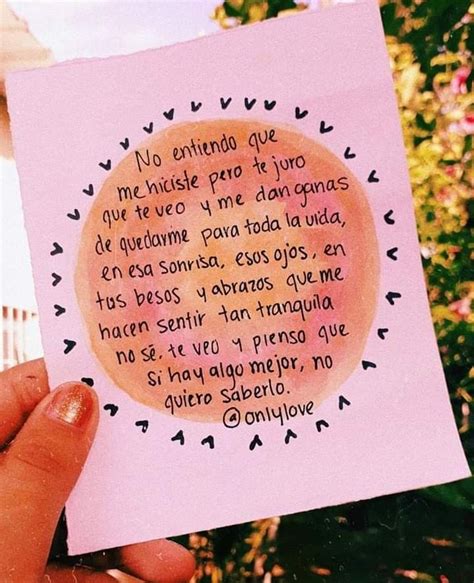 No entiendo que
me hiciste pero te juro
que te veo y me dan ganas
de quedarme para toda la vida,
en esa sonrisa, esos ojos, en
tus besos y abrazos que me
hacen sentir tan tranquila
no sé, te veo y pienso que
si hay algo mejor, no
quiero saberlo.
@onlylove